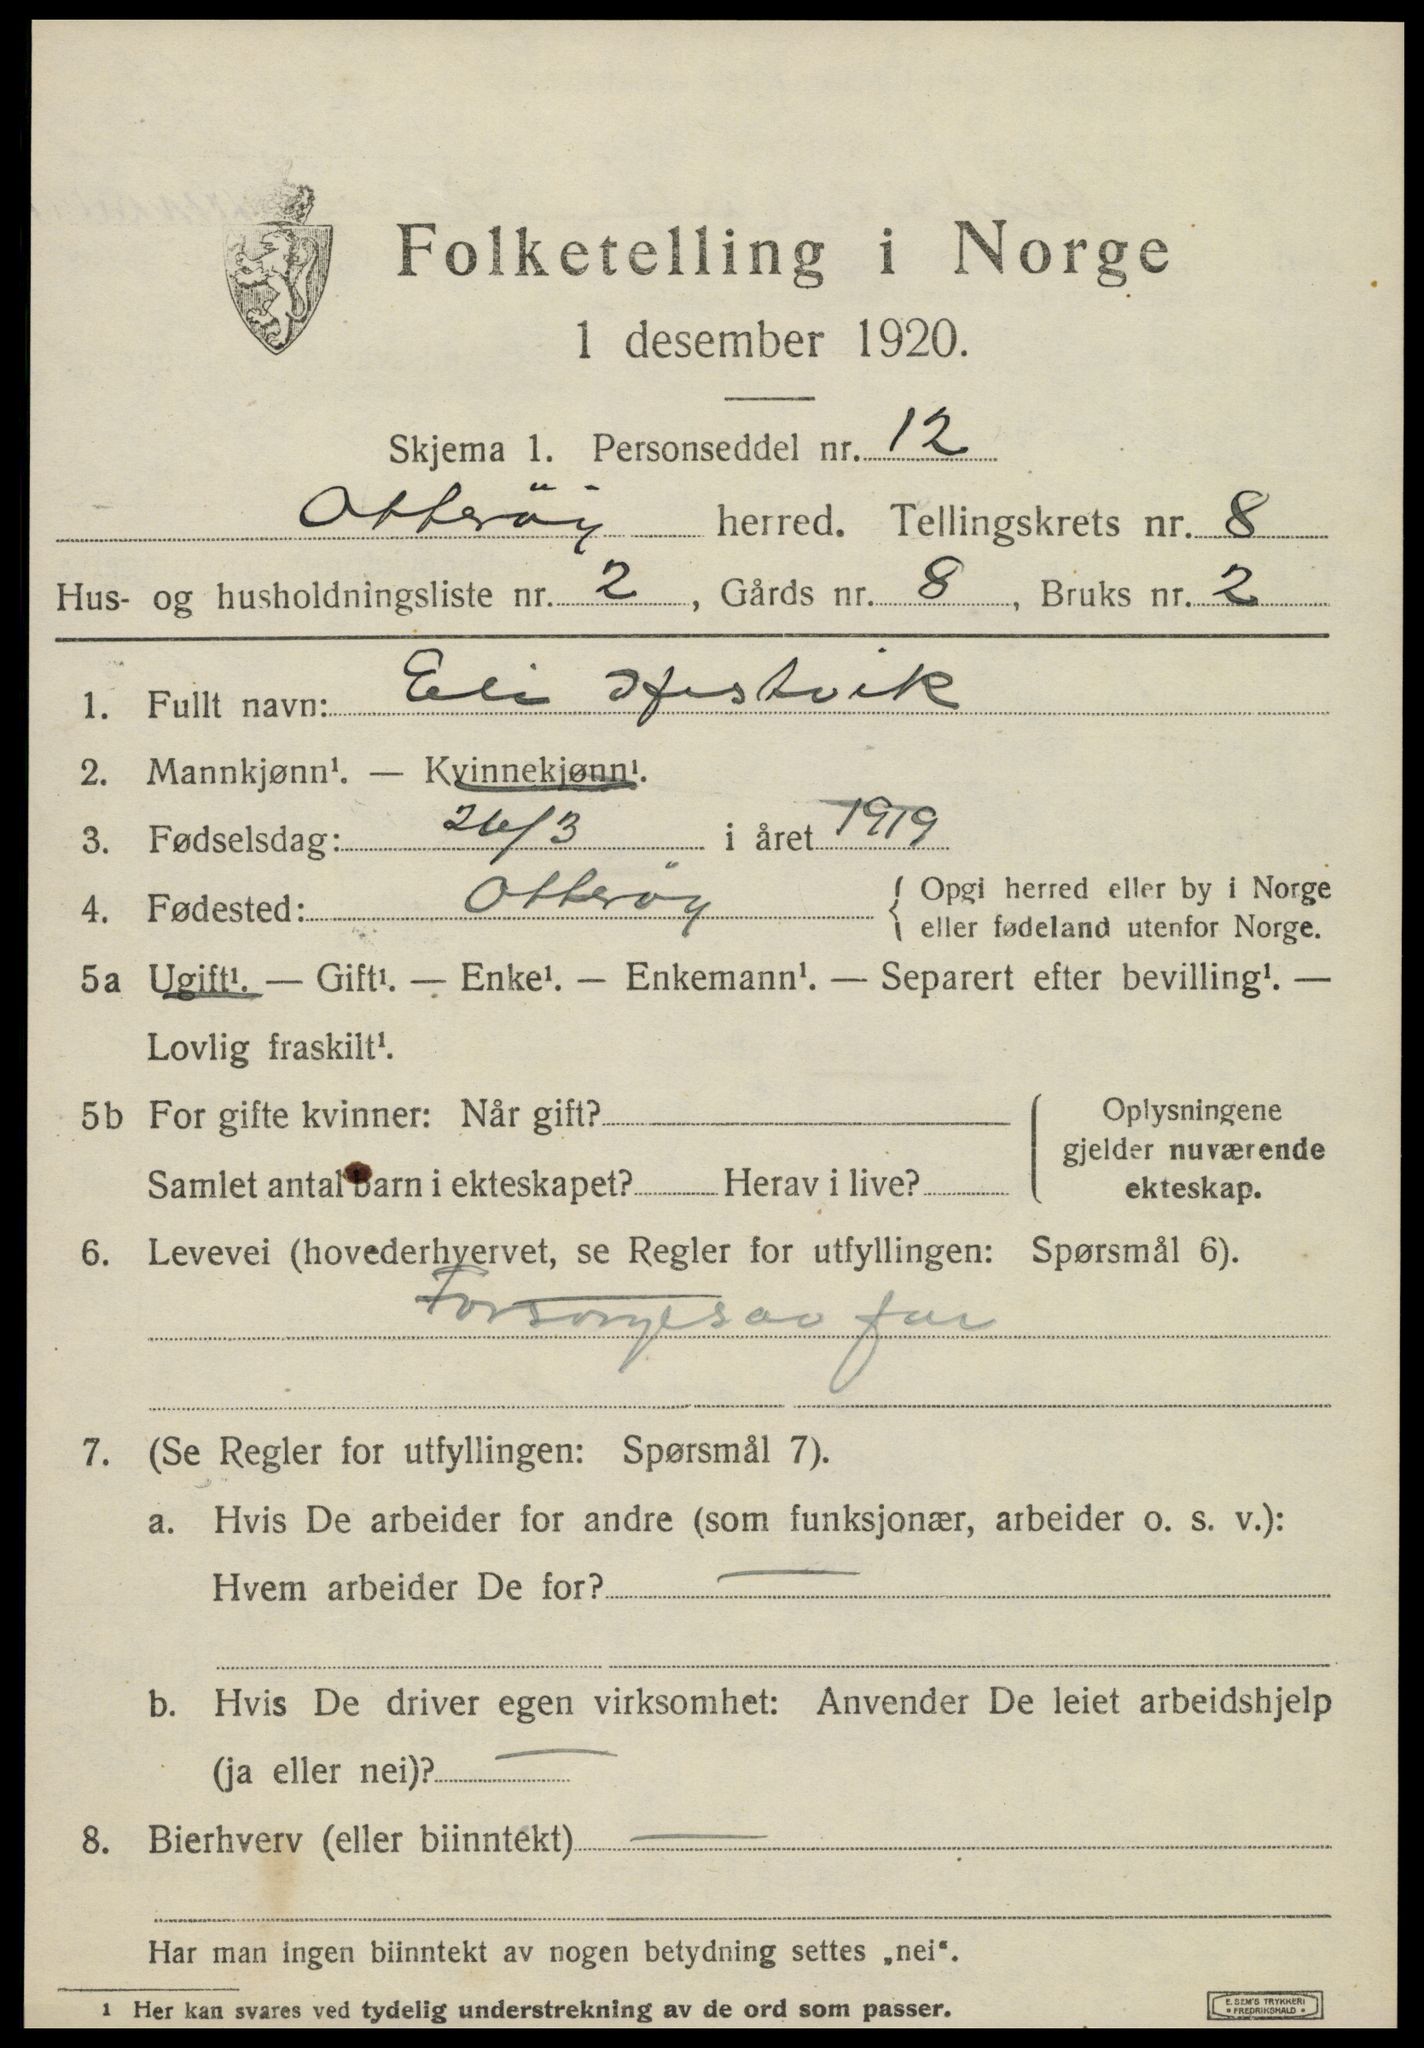 Folketelling i Norge
1 desember 1920.
Skjema 1. Personseddel nr. 12
Otterøy herred. Tellingskrets nr. 8
Hus- og husholdningsliste nr. 2, Gårds nr. 8, Bruks nr. 2
1. Fullt navn: Eli Hestvik
2. Mannkjønn¹. — Kvinnekjønn¹.
3. Fødselsdag: 26/3 i året 1919
4. Fødested: Otterøy { Opgi herred eller by i Norge
eller fødeland utenfor Norge.
5a Ugift¹. — Gift¹. — Enke¹. — Enkemann¹. — Separert efter bevilling¹. —
Lovlig fraskilt¹.
5b For gifte kvinner: Når gift?
Samlet antal barn i ekteskapet? Herav i live?
Oplysningene
gjelder nuværende
ekteskap.
6. Levevei (hovederhvervet, se Regler for utfyllingen: Spørsmål 6).
Forsørges av far
7. (Se Regler for utfyllingen: Spørsmål 7).
a. Hvis De arbeider for andre (som funksjonær, arbeider o. s. v.):
Hvem arbeider De for? —
b. Hvis De driver egen virksomhet: Anvender De leiet arbeidshjelp
(ja eller nei)? —
8. Bierhverv (eller biinntekt) —
Har man ingen biinntekt av nogen betydning settes „nei“.
1 Her kan svares ved tydelig understrekning av de ord som passer.
E. SEM'S TRYKKERI
• FREDRIKSHALD •